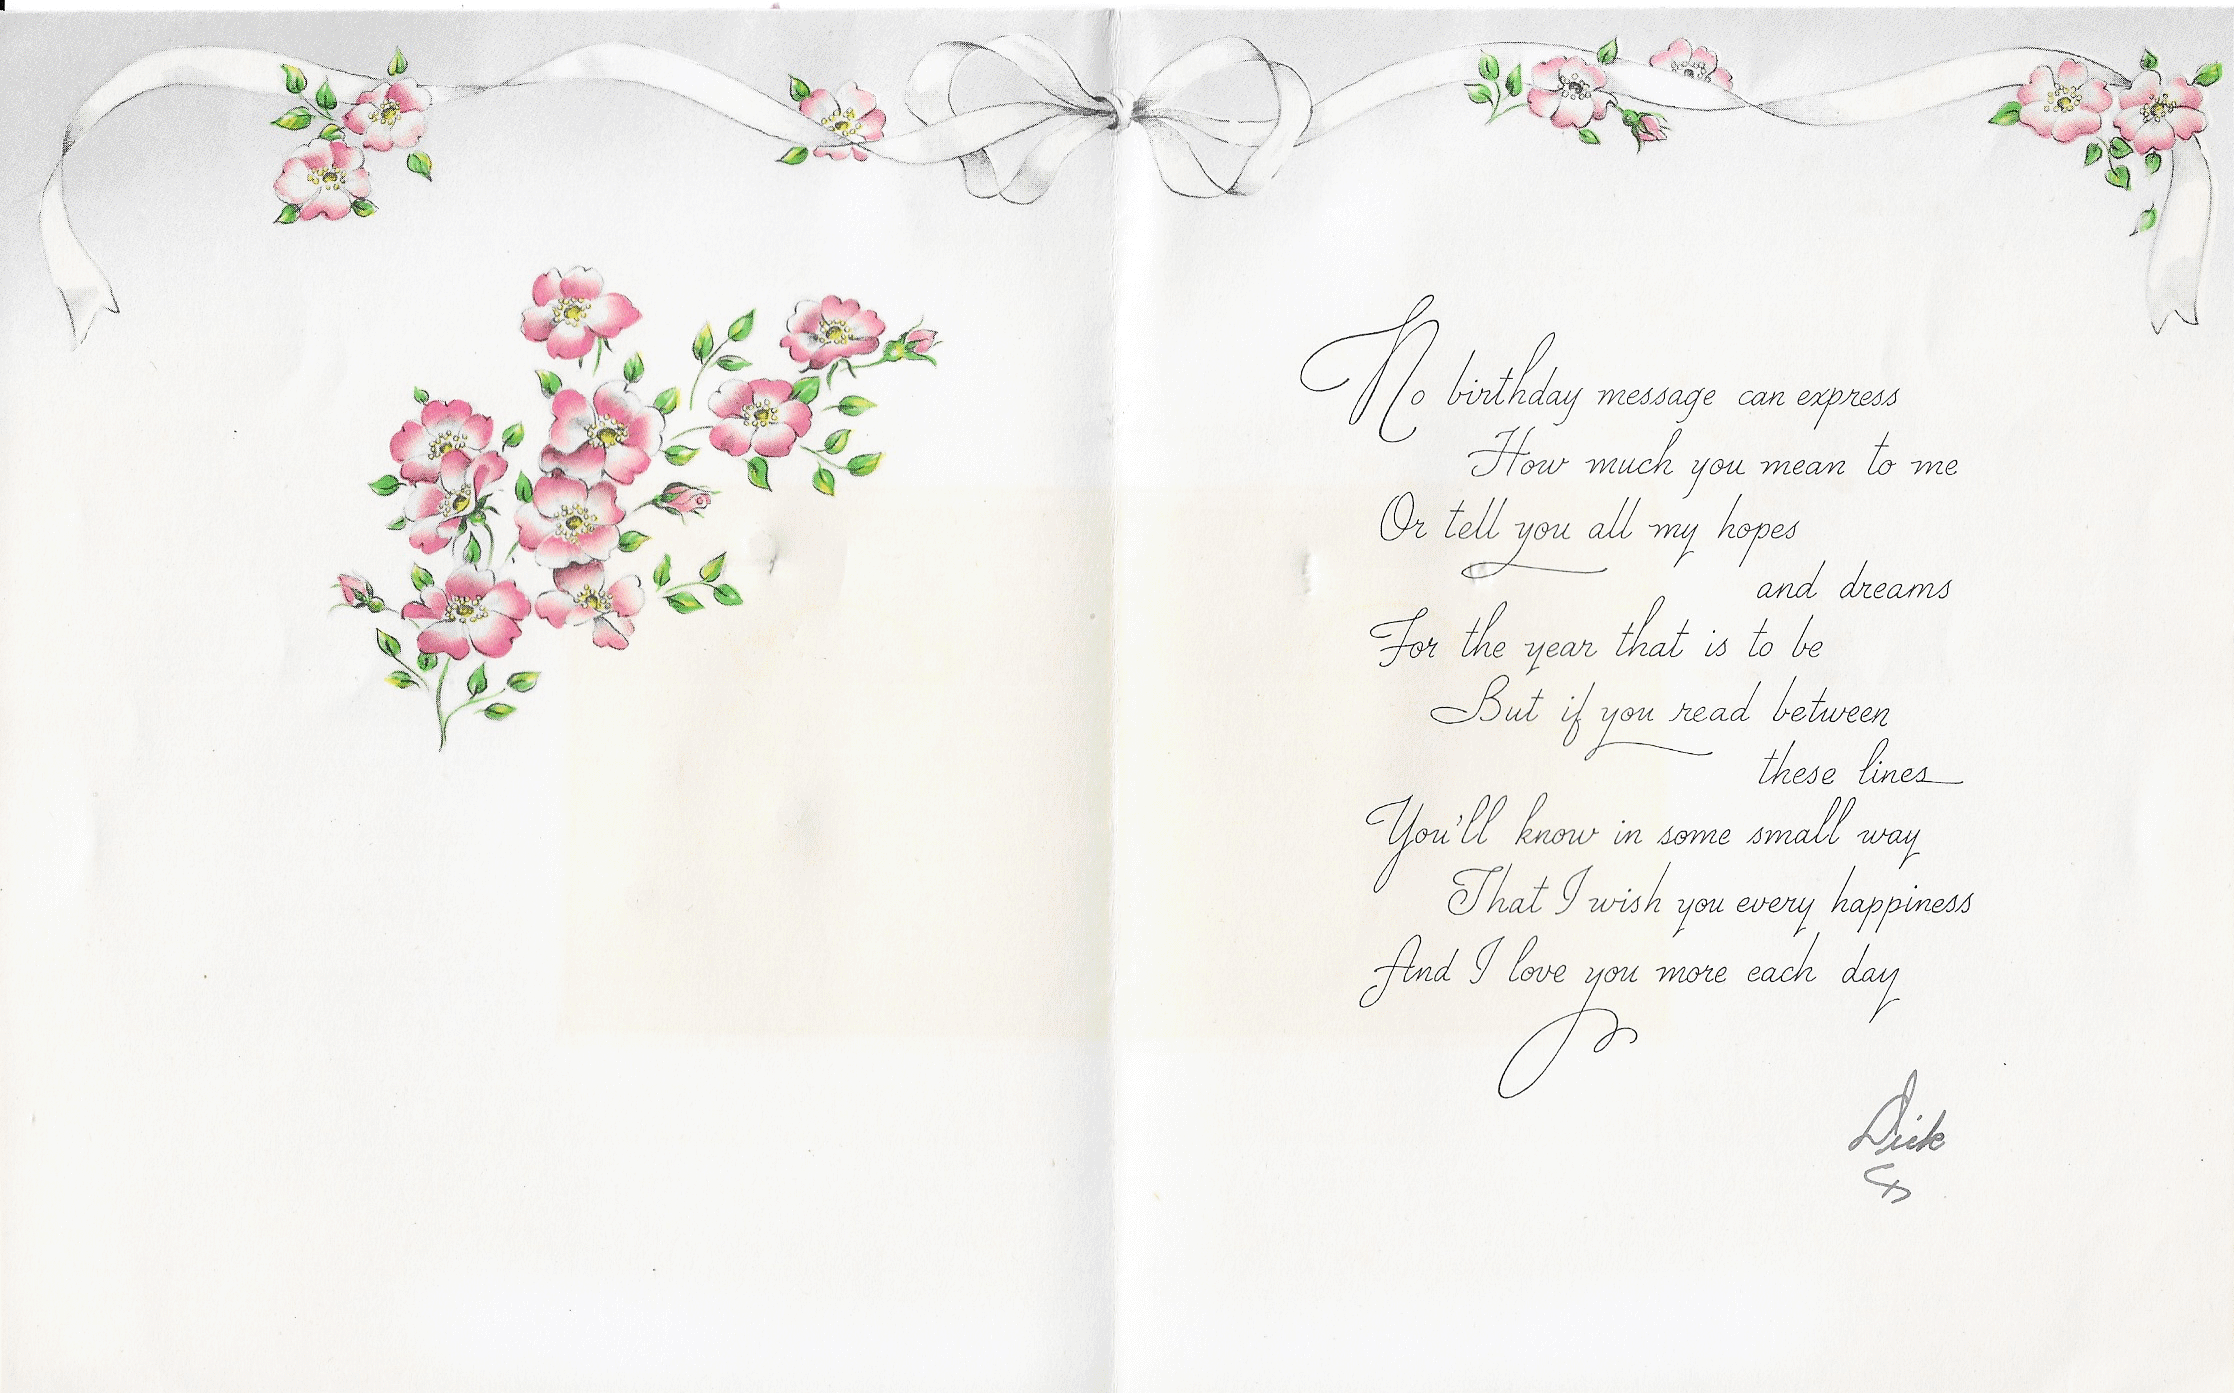 No birthday message can express
How much you mean to me
Or tell you all my hopes
and dreams
For the year that is to be
But if you read between
these lines
You'll know in some small way
That I wish you every happiness
And I love you more each day
Dick